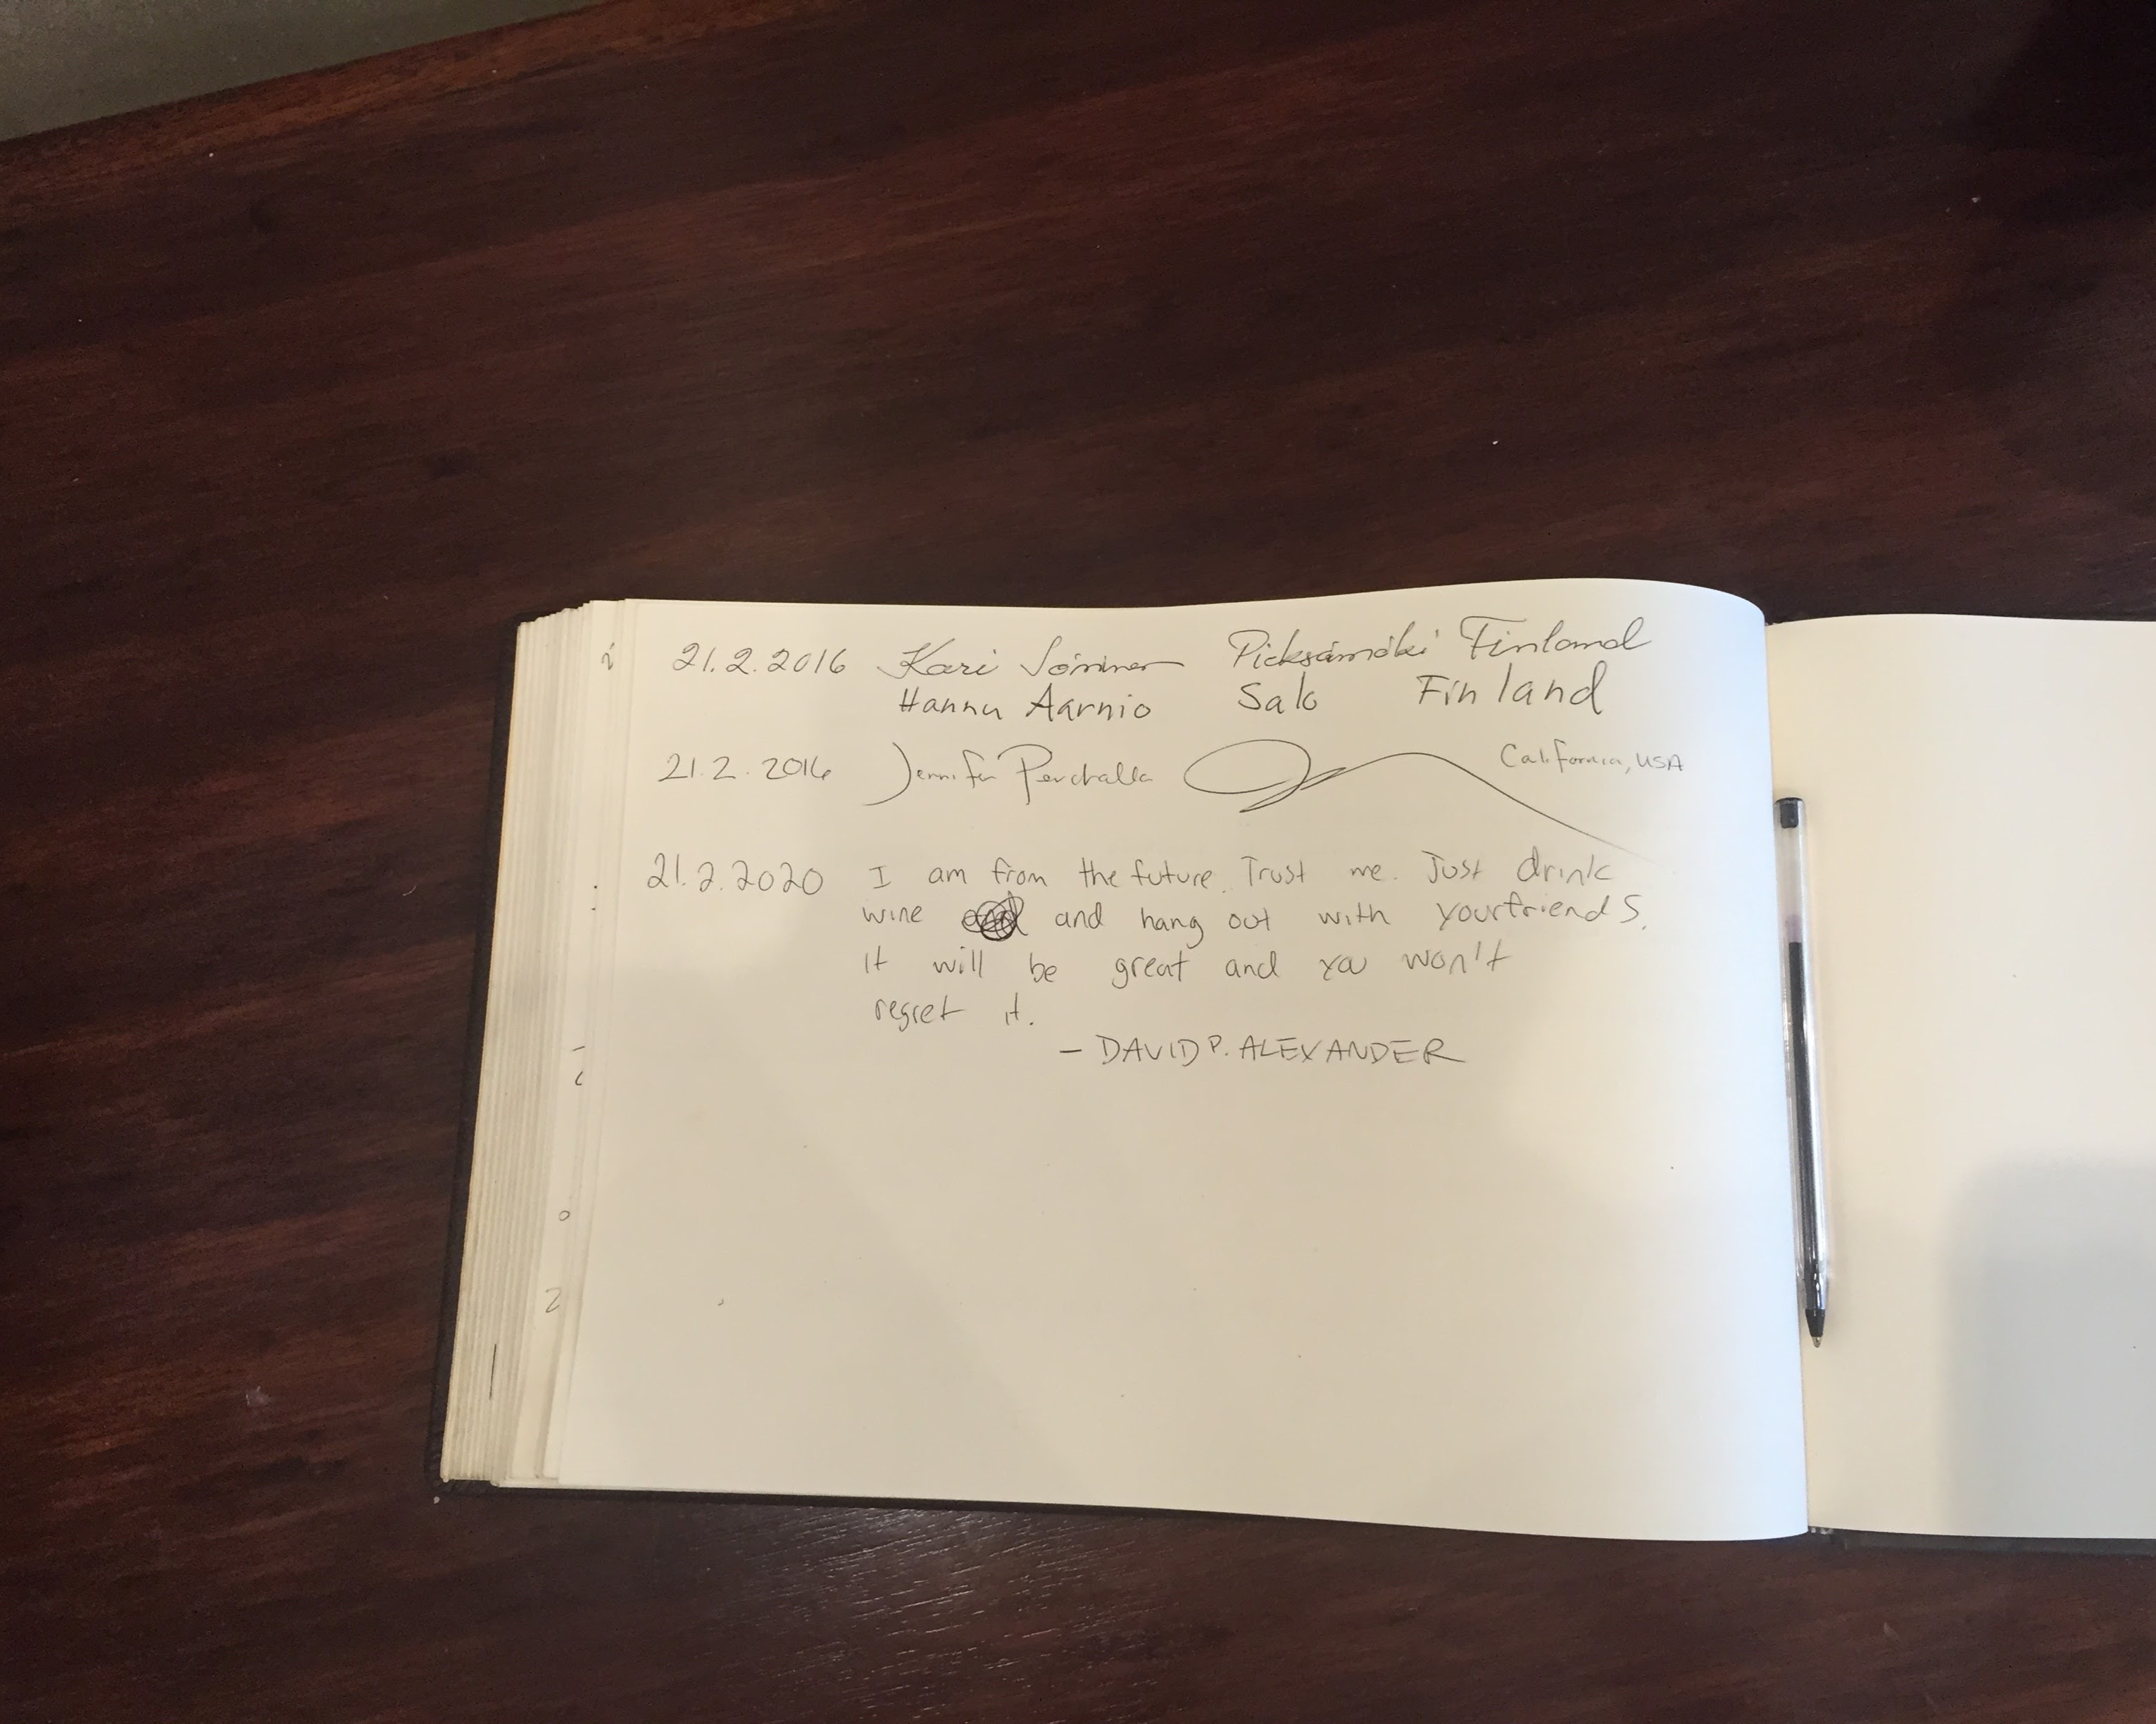 21.2.2016 Kari Finland
Hannu Aarnio Salo Finland
21.2.2016 Jennifer California, USA
21.2.2020 I am from the future. Trust me. Just drink
wine and hang out with your friends.
It will be great and you won't
regret it.
- DAVID P. ALEXANDER